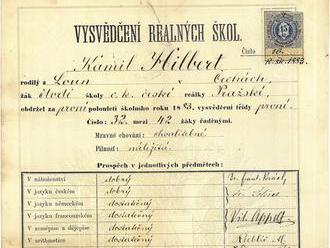 VYSVĚDČENÍ REALNÝCH ŠKOL.
Číslo 10.
15
Kamil Hilbert
rodilý z Loun v Čechách,
žák čtvrté školy c. k. české reálky Pražské,
obdržel za první pololetí školního roku 1883, vysvědčení třídy první,
Číslo: 32, mezi 42 žáky řaděnými.
Mravné chování: chvalitebné
Pilnost: náležitá
Prospěch v jednotlivých předmětech:
V náboženství dobrý
V jazyku českém dobrý
V jazyku německém dostatečný
V jazyku francouzském dostatečný
V zeměpise a dějepise dostatečný
V arithmetice dostatečný